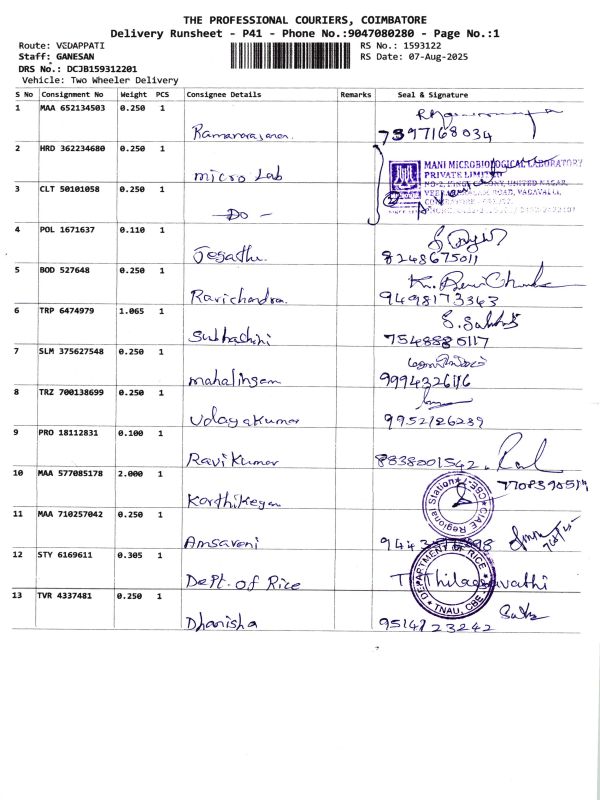 THE PROFESSIONAL COURIERS, COIMBATORE
Delivery Runsheet - P41 - Phone No.:9047080280 - Page No.:1
Route: VEDAPPATI
RS No.: 1593122
Staff: GANESAN
RS Date: 07-Aug-2025
DRS No.: DCJB159312201
Vehicle: Two Wheeler Delivery
S No Consignment No Weight PCS Consignee Details Remarks Seal & Signature
1 MAA 652134503 0.250 1
7397168034
2 HRD 362234680 0.250 1
micro Lab
MANI MICROBIOLOGICAL LABORATORY
PRIVATE LIMITED
3 CLT 50101058 0.250 1
- Do -
4 POL 1671637 0.110 1
8248675011
5 BOD 527648 0.250 1
Ravichandran
9498173343
6 TRP 6474979 1.065 1
Subhachini
7548885117
7 SLM 375627548 0.250 1
mahalingam
9994326116
8 TRZ 700138699 0.250 1
Udayakumar
9952126239
9 PRO 18112831 0.100 1
Ravikumar
8838001542
10 MAA 577085178 2.000 1
Karthikeyan
CIAE Regional Station CBE-7
11 MAA 710257042 0.250 1
Amsaveni
12 STY 6169611 0.305 1
Dept. of Rice
DEPARTMENT OF RICE
TNAU, CBE
T. Thilagavathi
13 TVR 4337481 0.250 1
Dhanisha
9514123242